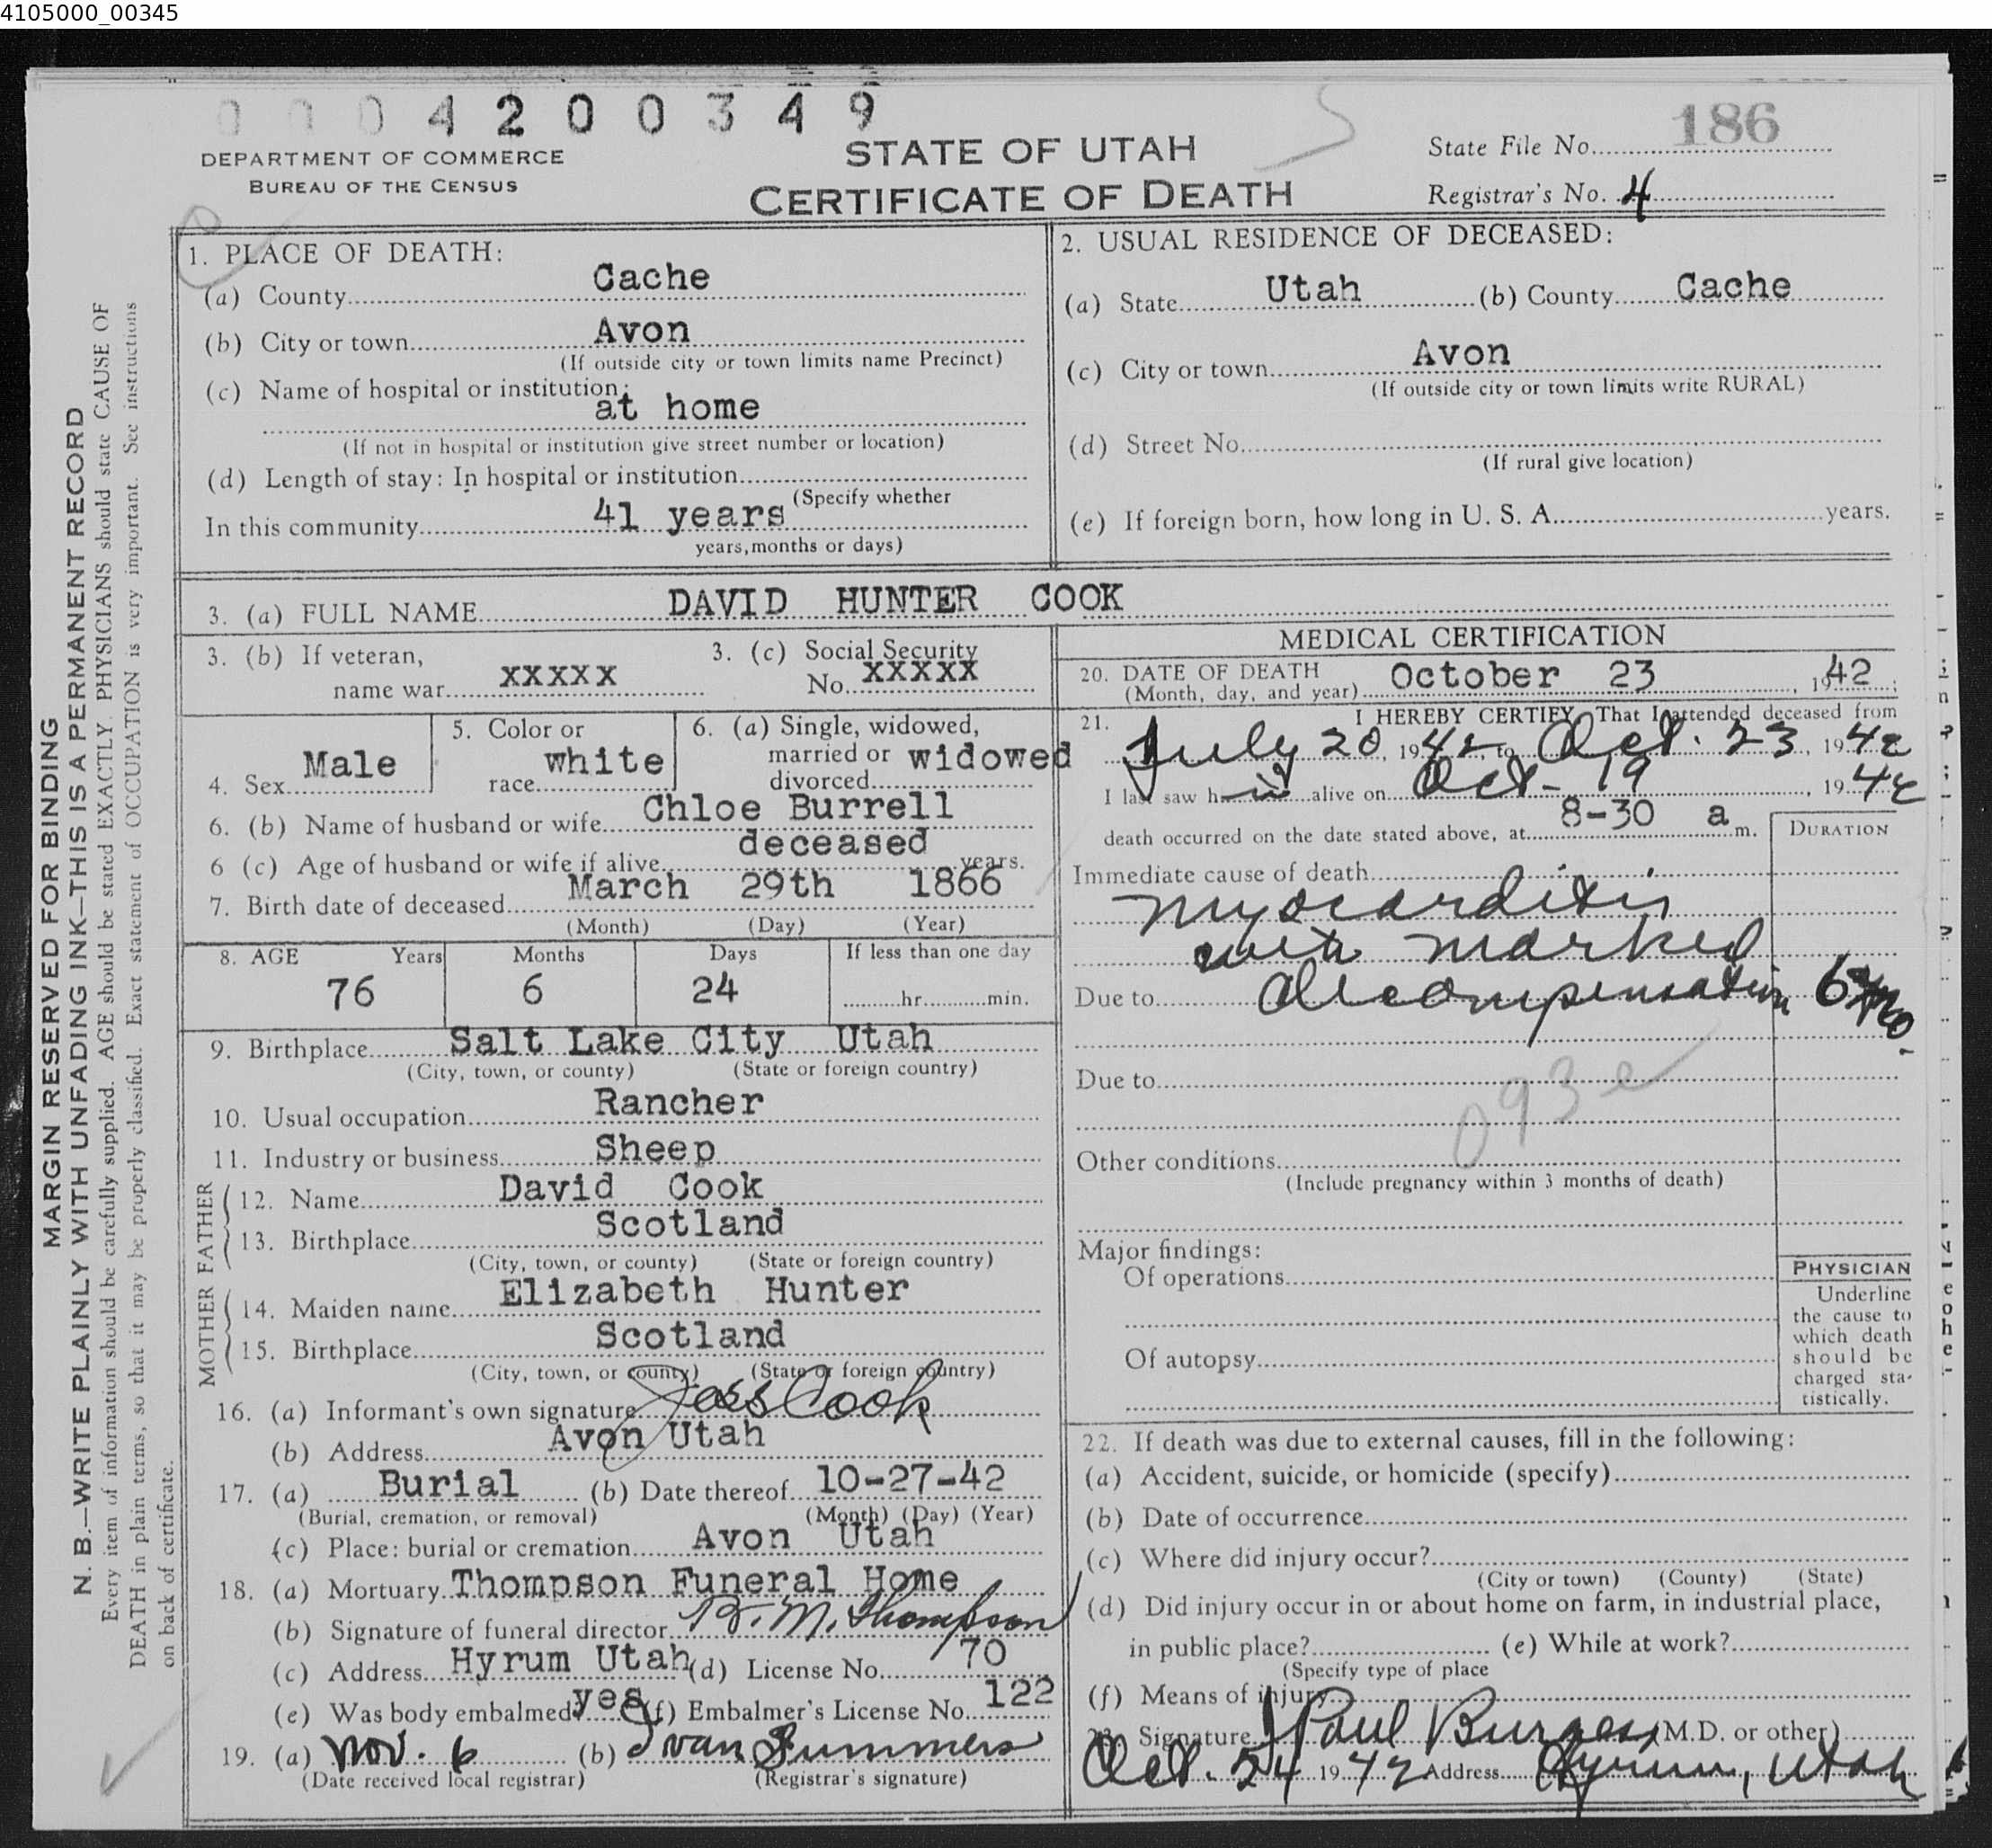 4105000_00345
0004200349
DEPARTMENT OF COMMERCE
BUREAU OF THE CENSUS
STATE OF UTAH
CERTIFICATE OF DEATH
State File No. 186
Registrar's No. 4
MARGIN RESERVED FOR BINDING
N. B.—WRITE PLAINLY WITH UNFADING INK—THIS IS A PERMANENT RECORD
Every item of information should be carefully supplied. AGE should be stated EXACTLY. PHYSICIANS should state CAUSE OF
DEATH in plain terms, so that it may be properly classified. Exact statement of OCCUPATION is very important. See instructions
on back of certificate.
1. PLACE OF DEATH:
(a) County Cache
(b) City or town Avon
(If outside city or town limits name Precinct)
(c) Name of hospital or institution:
at home
(If not in hospital or institution give street number or location)
(d) Length of stay: In hospital or institution
(Specify whether
In this community 41 years
years, months or days)
2. USUAL RESIDENCE OF DECEASED:
(a) State Utah (b) County Cache
(c) City or town Avon
(If outside city or town limits write RURAL)
(d) Street No.
(If rural give location)
(e) If foreign born, how long in U. S. A. years.
3. (a) FULL NAME DAVID HUNTER COOK
3. (b) If veteran,
name war xxxxx
3. (c) Social Security
No. xxxxx
4. Sex Male
5. Color or
race white
6. (a) Single, widowed,
married or widowed
divorced
6. (b) Name of husband or wife Chloe Burrell
6 (c) Age of husband or wife if alive deceased years.
7. Birth date of deceased March 29th 1866
(Month) (Day) (Year)
8. AGE Years Months Days If less than one day
76 6 24 hr. min.
9. Birthplace Salt Lake City Utah
(City, town, or county) (State or foreign country)
10. Usual occupation Rancher
11. Industry or business Sheep
FATHER
12. Name David Cook
13. Birthplace Scotland
(City, town, or county) (State or foreign country)
MOTHER
14. Maiden name Elizabeth Hunter
15. Birthplace Scotland
(City, town, or county) (State or foreign country)
16. (a) Informant's own signature Cook
(b) Address Avon Utah
17. (a) Burial (b) Date thereof 10-27-42
(Burial, cremation, or removal) (Month) (Day) (Year)
(c) Place: burial or cremation Avon Utah
18. (a) Mortuary Thompson Funeral Home
(b) Signature of funeral director B. M. Thompson
(c) Address Hyrum Utah (d) License No. 70
(e) Was body embalmed? yes (f) Embalmer's License No. 122
19. (a) Nov. 6 (b) Ivan Summers
(Date received local registrar) (Registrar's signature)
MEDICAL CERTIFICATION
20. DATE OF DEATH October 23, 1942
(Month, day, and year)
21. I HEREBY CERTIFY, That I attended deceased from
July 20, 1942, to Oct. 23, 1942
I last saw h im alive on Oct - 19, 1942
death occurred on the date stated above, at 8-30 a m.
DURATION
Immediate cause of death
Myocarditis
with marked
Due to decompensation 6 mo.
Due to
093e
Other conditions
(Include pregnancy within 3 months of death)
Major findings:
Of operations
Of autopsy
PHYSICIAN
Underline
the cause to
which death
should be
charged sta-
tistically.
22. If death was due to external causes, fill in the following:
(a) Accident, suicide, or homicide (specify)
(b) Date of occurrence
(c) Where did injury occur?
(City or town) (County) (State)
(d) Did injury occur in or about home on farm, in industrial place,
in public place? (e) While at work?
(Specify type of place
(f) Means of injury
23. Signature J Paul Burgess (M.D. or other)
Oct. 24 1942 Address Hyrum, Utah